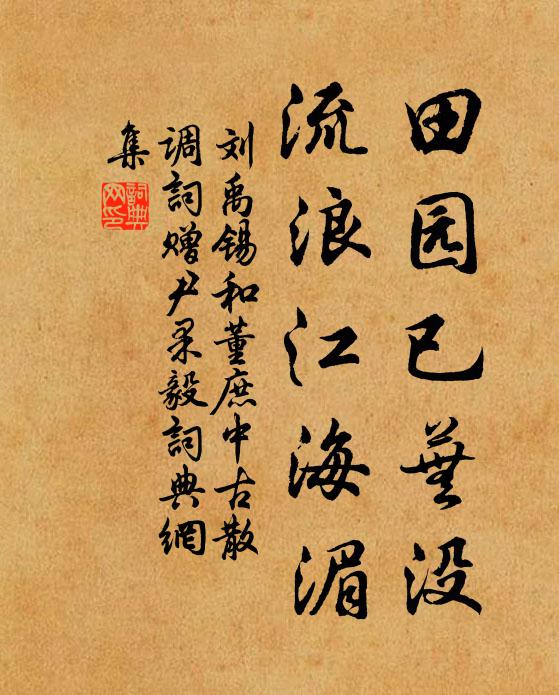 田园已芜没
流浪江海湄
刘禹锡和董庶中古散
调詞赠尹果毅詞典網
集
詞典
网印